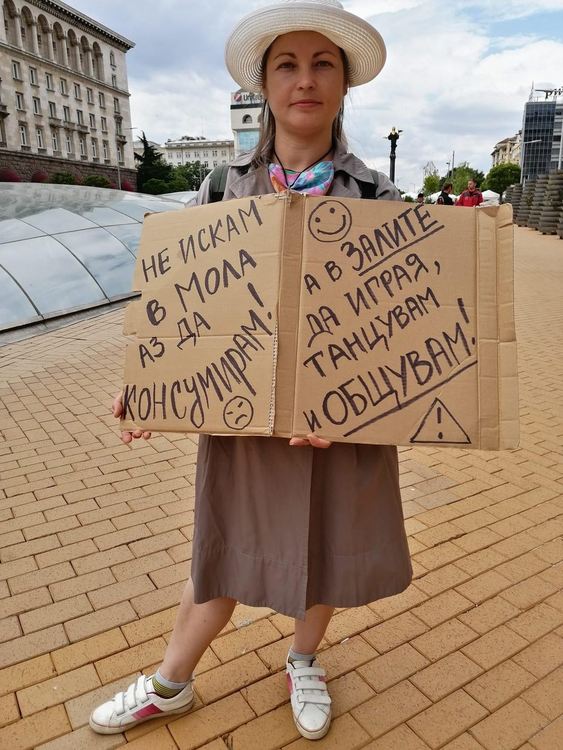 НЕ ИСКАМ
В МОЛА
АЗ ДА
КОНСУМИРАМ!
А В ЗАЛИТЕ
ДА ИГРАЯ,
ТАНЦУВАМ
И ОБЩУВАМ!